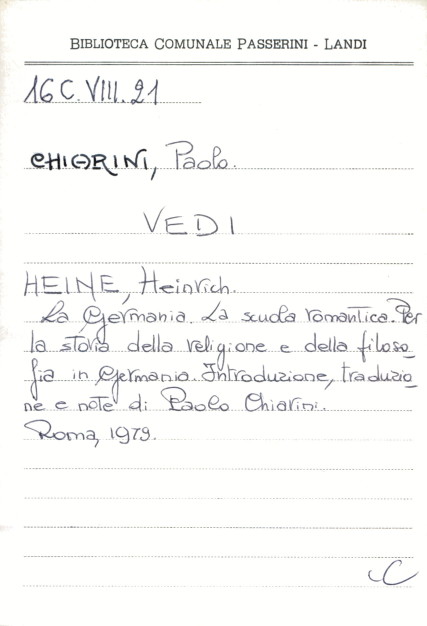 BIBLIOTECA COMUNALE PASSERINI - LANDI
16 C. VIII. 21
CHIARINI, Paolo.
VEDI
HEINE, Heinrich.
La Germania. La scuola romantica. Per
la storia della religione e della filoso_
fia in Germania. Introduzione, traduzio_
ne e note di Paolo Chiarini.
Roma, 1979.
C